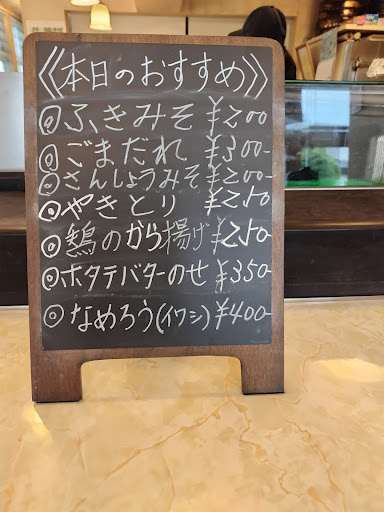 《本日のおすすめ》
◎ふきみそ ¥200
◎ごまだれ ¥300-
◎さんしょうみそ ¥200-
◎やきとり ¥250
◎鶏のから揚げ ¥250-
◎ホタテバターのせ ¥350-
◎なめろう(イワシ) ¥400-